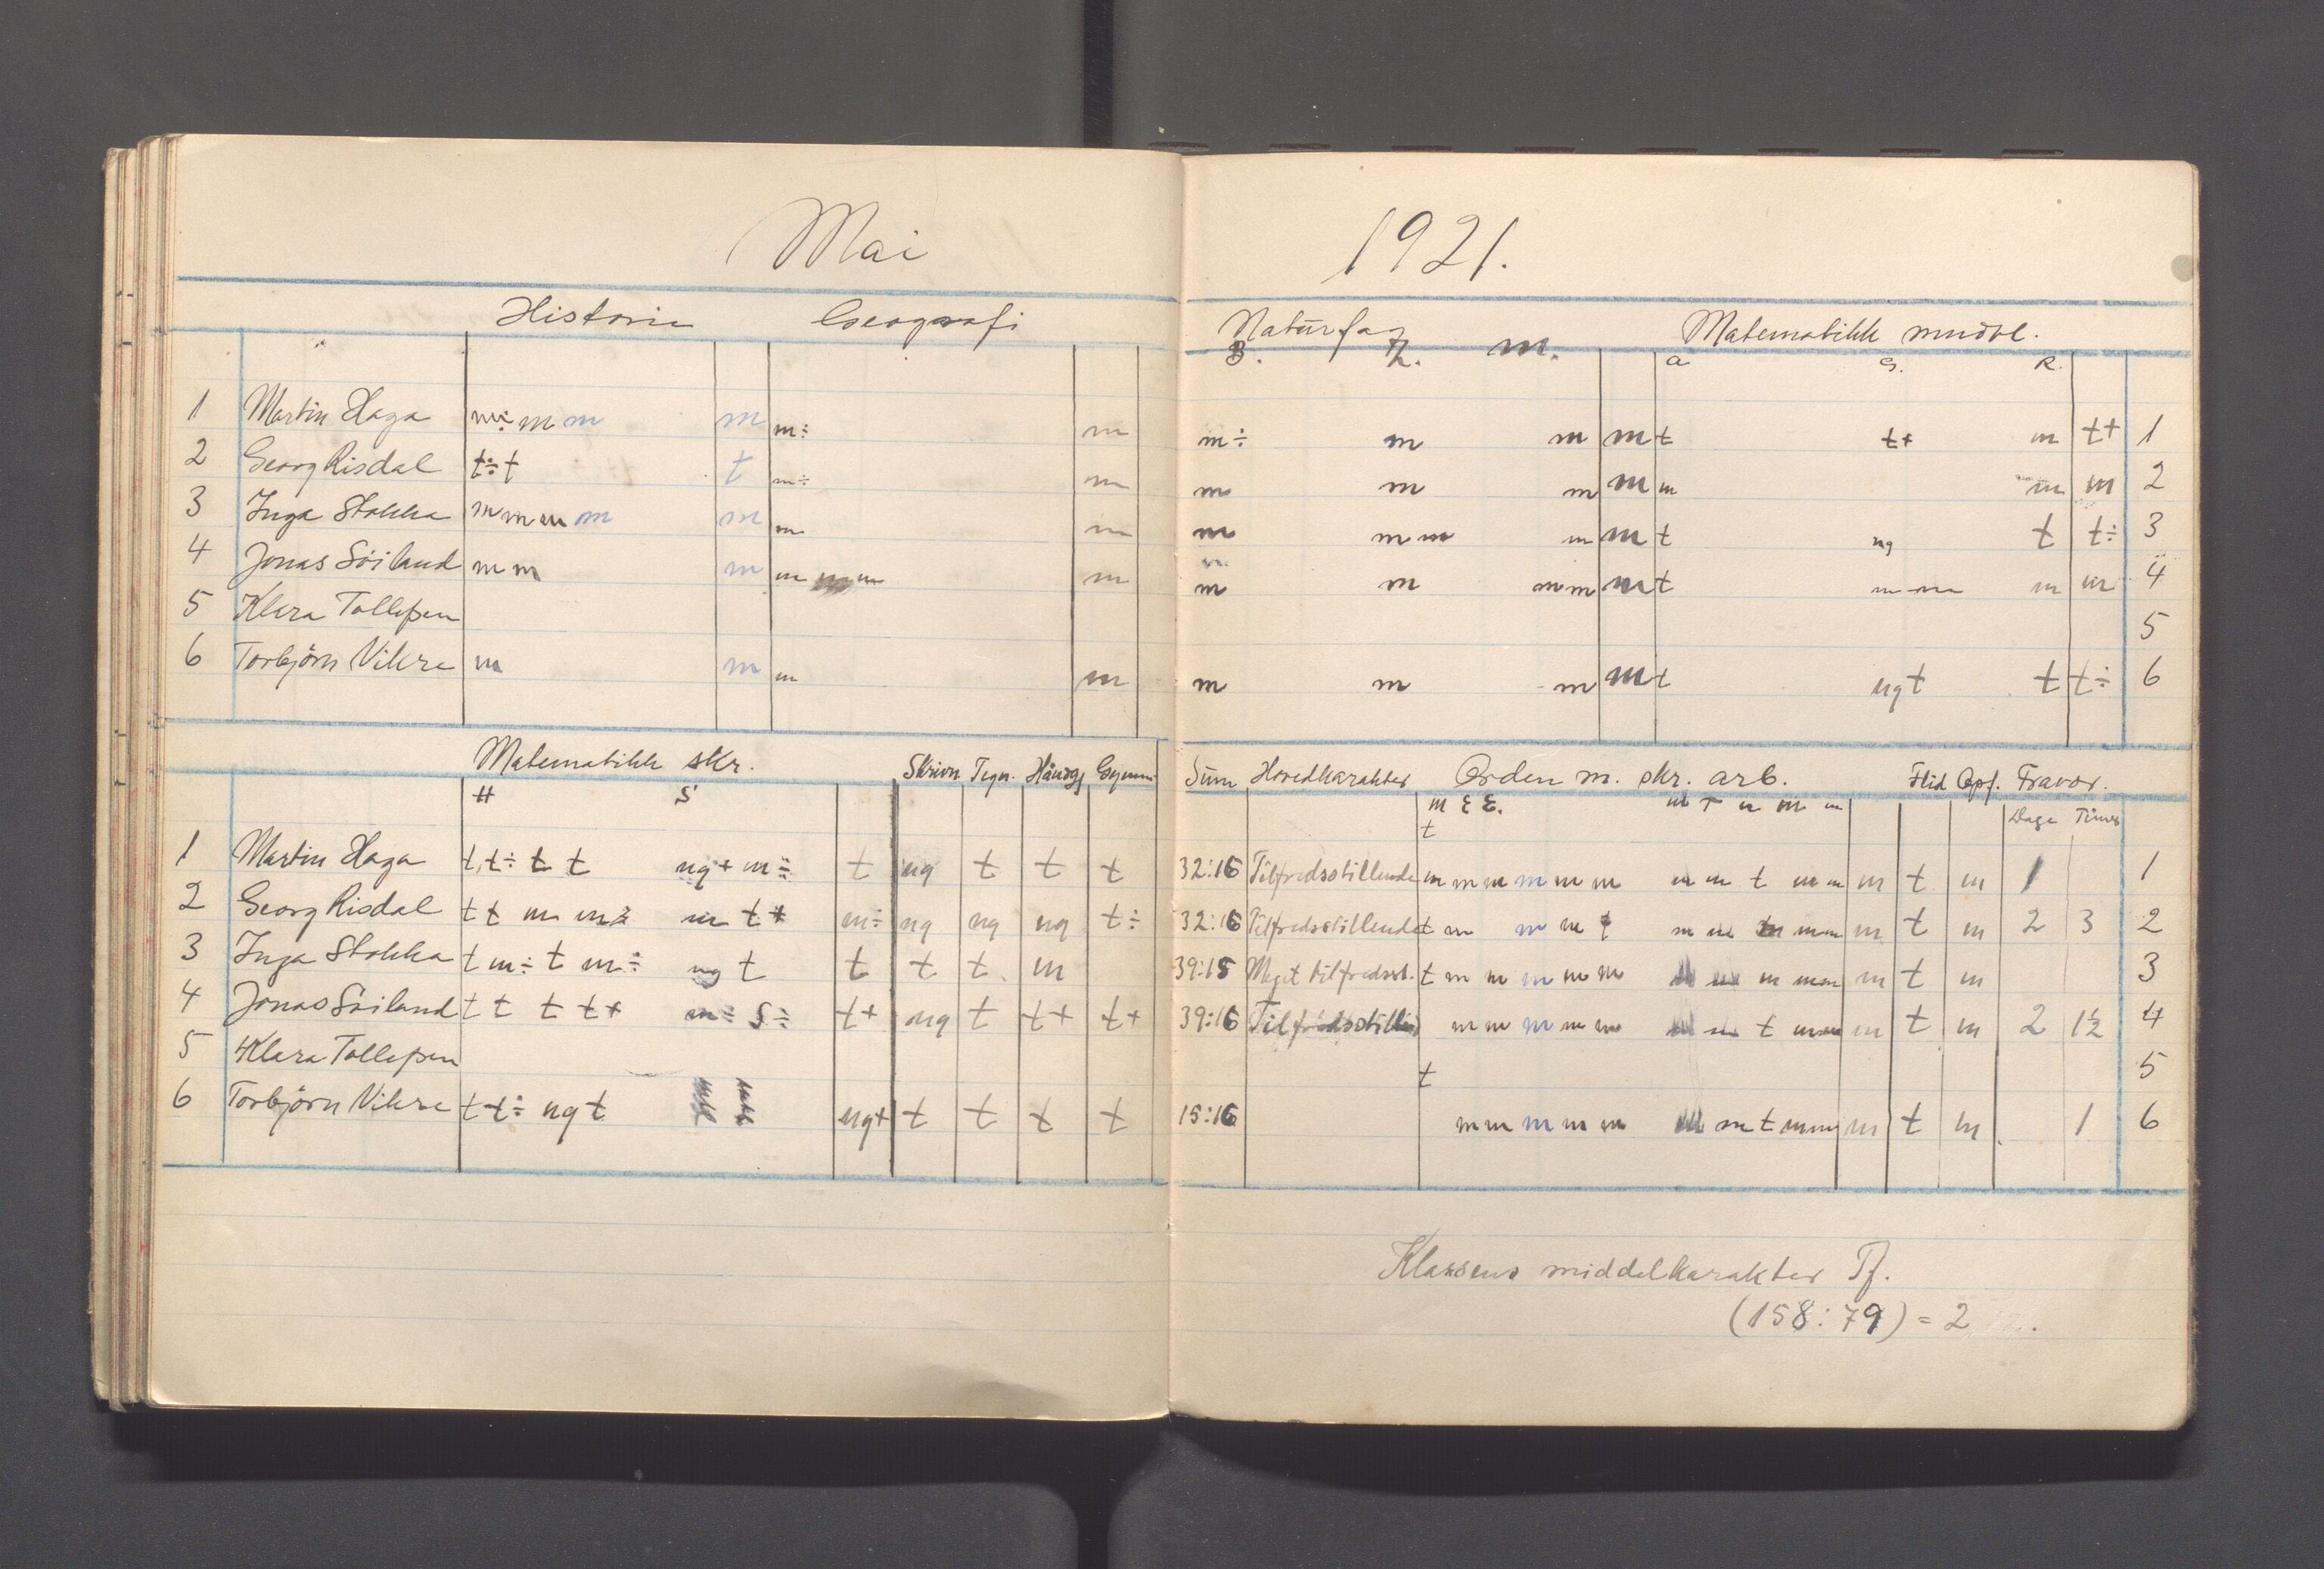 Mai
1921.
Historie Geografi
Naturfag Matematikk mudtl.
B. Z. M. a G. R.
1 Martin Haga m÷ m m m m÷ m
m÷ m m m t t+ m t+ 1
2 Georg Risdal t÷ t t m÷ m
m m m m m m m 2
3 Inga Stokka m m m m m m m
m m m m m t ng t t÷ 3
4 Jonas Söiland m m m m m m
m m m m m t m m m m 4
5 Klara Tollefsen
5
6 Torbjörn Vikre m m m m
m m m m t ng t t t÷ 6
Matematikk skr. Skrivn. Tegn. Håndgj Gymn.
Sum Hovedkarakter Orden m. skr. arb. Flid Opf. Fravær.
H S
m E E. m T m m m Dage Timer
t
1 Martin Haga t t÷ t t ng+ m÷ t ng t t t
32:16 Tilfredsstillende m m m m m m m m t m m m t m 1 1
2 Georg Risdal t t m m÷ m t+ m÷ ng ng ng t÷
32:16 Tilfredsstillende t m m m t m m m m m m t m 2 3 2
3 Inga Stokka t m÷ t m÷ ng t t t t m
39:15 Meget tilfredsst. t m m m m m m m m m t m 3
4 Jonas Söiland t t t t+ m÷ S÷ t+ ng t t+ t+
39:16 m m m m m m t m m m t m 2 1½ 4
5 Klara Tollefsen
t 5
6 Torbjörn Vikre t t÷ ng t ng+ t t t t
15:16 m m m m m m t m m m t m 1 6
Klassens middelkarakter Tf.
(158:79) = 2